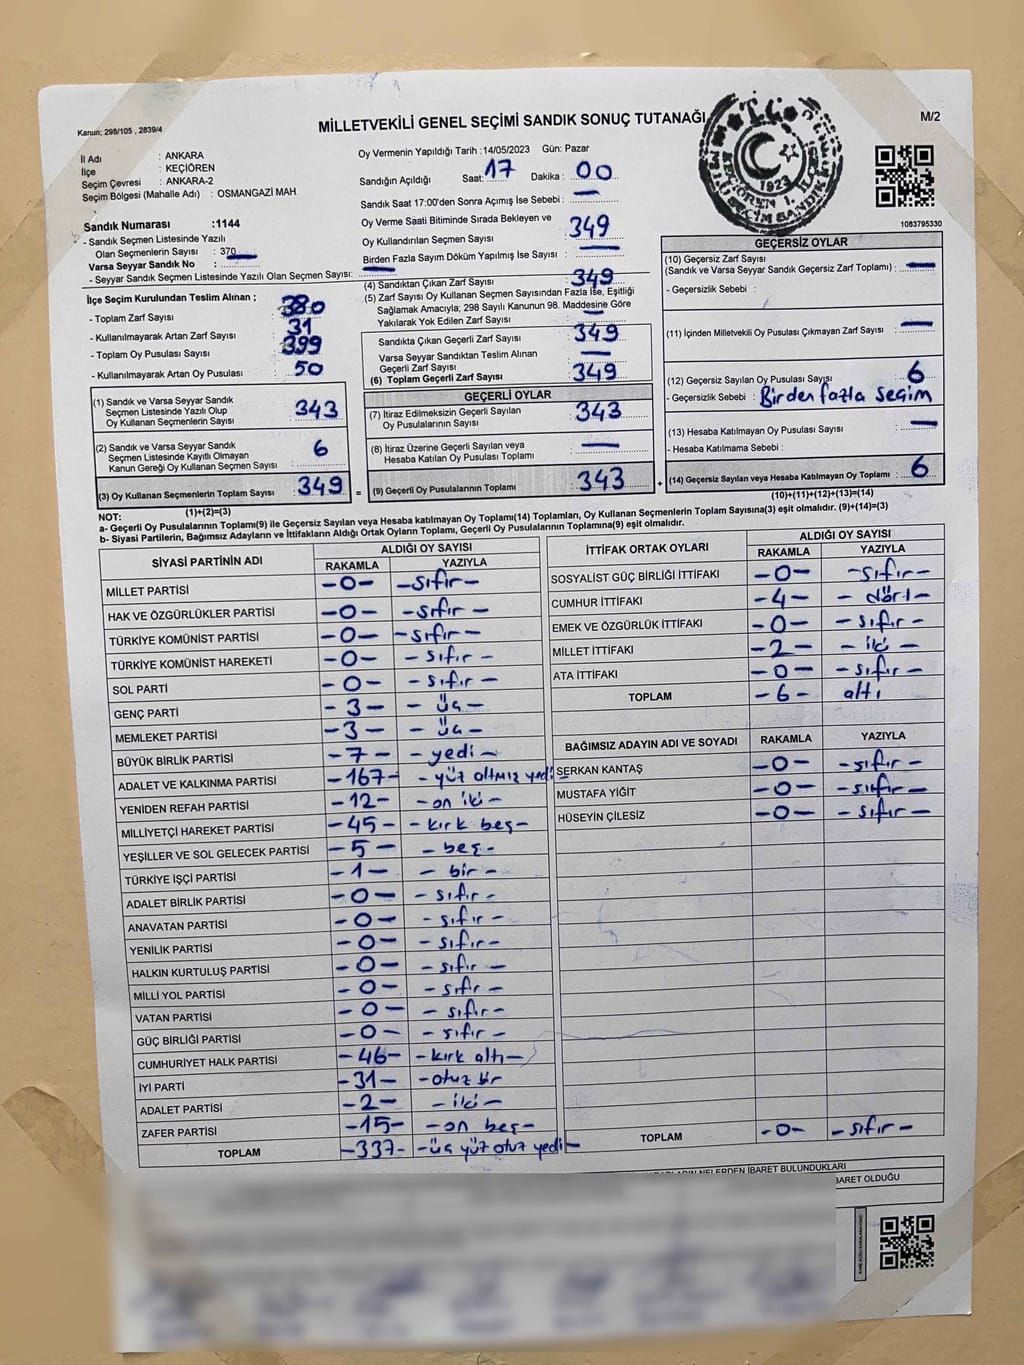 Kanun; 298/105 , 2839/4
MİLLETVEKİLİ GENEL SEÇİMİ SANDIK SONUÇ TUTANAĞI
M/2
İl Adı : ANKARA
İlçe : KEÇİÖREN
Seçim Çevresi : ANKARA-2
Seçim Bölgesi (Mahalle Adı) : OSMANGAZİ MAH.
Oy Vermenin Yapıldığı Tarih :14/05/2023 Gün: Pazar
Sandığın Açıldığı Saat: 17 Dakika : 00
Sandık Saat 17:00'den Sonra Açımış İse Sebebi : —
Oy Verme Saati Bitiminde Sırada Bekleyen ve
Oy Kullandırılan Seçmen Sayısı : 349
Birden Fazla Sayım Döküm Yapılmış İse Sayısı : —
1083795330
Sandık Numarası :1144
- Sandık Seçmen Listesinde Yazılı
Olan Seçmenlerin Sayısı : 370
Varsa Seyyar Sandık No : —
- Seyyar Sandık Seçmen Listesinde Yazılı Olan Seçmen Sayısı: —
İlçe Seçim Kurulundan Teslim Alınan ;
- Toplam Zarf Sayısı : 380
- Kullanılmayarak Artan Zarf Sayısı : 31
- Toplam Oy Pusulası Sayısı : 399
- Kullanılmayarak Artan Oy Pusulası : 50
(1) Sandık ve Varsa Seyyar Sandık
Seçmen Listesinde Yazılı Olup
Oy Kullanan Seçmenlerin Sayısı : 343
(2) Sandık ve Varsa Seyyar Sandık
Seçmen Listesinde Kayıtlı Olmayan
Kanun Gereği Oy Kullanan Seçmen Sayısı : 6
(3) Oy Kullanan Seçmenlerin Toplam Sayısı : 349
(1)+(2)=(3)
(4) Sandıktan Çıkan Zarf Sayısı : 349
(5) Zarf Sayısı Oy Kullanan Seçmen Sayısından Fazla İse, Eşitliği
Sağlamak Amacıyla; 298 Sayılı Kanunun 98. Maddesine Göre
Yakılarak Yok Edilen Zarf Sayısı : —
Sandıkta Çıkan Geçerli Zarf Sayısı : 349
Varsa Seyyar Sandıktan Teslim Alınan
Geçerli Zarf Sayısı : —
(6) Toplam Geçerli Zarf Sayısı : 349
GEÇERLİ OYLAR
(7) İtiraz Edilmeksizin Geçerli Sayılan
Oy Pusulalarının Sayısı : 343
(8) İtiraz Üzerine Geçerli Sayılan veya
Hesaba Katılan Oy Pusulası Toplamı : —
= (9) Geçerli Oy Pusulalarının Toplamı : 343
GEÇERSİZ OYLAR
(10) Geçersiz Zarf Sayısı
(Sandık ve Varsa Seyyar Sandık Geçersiz Zarf Toplamı) : —
- Geçersizlik Sebebi :
(11) İçinden Milletvekili Oy Pusulası Çıkmayan Zarf Sayısı : —
(12) Geçersiz Sayılan Oy Pusulası Sayısı : 6
- Geçersizlik Sebebi : Birden fazla seçim
(13) Hesaba Katılmayan Oy Pusulası Sayısı : —
- Hesaba Katılmama Sebebi :
+ (14) Geçersiz Sayılan veya Hesaba Katılmayan Oy Toplamı : 6
(10)+(11)+(12)+(13)=(14)
NOT:
a- Geçerli Oy Pusulalarının Toplamı(9) ile Geçersiz Sayılan veya Hesaba katılmayan Oy Toplamı(14) Toplamları, Oy Kullanan Seçmenlerin Toplam Sayısına(3) eşit olmalıdır. (9)+(14)=(3)
b- Siyasi Partilerin, Bağımsız Adayların ve İttifakların Aldığı Ortak Oyların Toplamı, Geçerli Oy Pusulalarının Toplamına(9) eşit olmalıdır.
SİYASİ PARTİNİN ADI ALDIĞI OY SAYISI
RAKAMLA YAZIYLA
MİLLET PARTİSİ -0- -sıfır-
HAK VE ÖZGÜRLÜKLER PARTİSİ -0- -sıfır-
TÜRKİYE KOMÜNİST PARTİSİ -0- -sıfır-
TÜRKİYE KOMÜNİST HAREKETİ -0- -sıfır-
SOL PARTİ -0- -sıfır-
GENÇ PARTİ -3- -üç-
MEMLEKET PARTİSİ -3- -üç-
BÜYÜK BİRLİK PARTİSİ -7- -yedi-
ADALET VE KALKINMA PARTİSİ -167- -yüz altmış yedi-
YENİDEN REFAH PARTİSİ -12- -on iki-
MİLLİYETÇİ HAREKET PARTİSİ -45- -kırk beş-
YEŞİLLER VE SOL GELECEK PARTİSİ -5- -beş-
TÜRKİYE İŞÇİ PARTİSİ -1- -bir-
ADALET BİRLİK PARTİSİ -0- -sıfır-
ANAVATAN PARTİSİ -0- -sıfır-
YENİLİK PARTİSİ -0- -sıfır-
HALKIN KURTULUŞ PARTİSİ -0- -sıfır-
MİLLİ YOL PARTİSİ -0- -sıfır-
VATAN PARTİSİ -0- -sıfır-
GÜÇ BİRLİĞİ PARTİSİ -0- -sıfır-
CUMHURİYET HALK PARTİSİ -46- -kırk altı-
İYİ PARTİ -31- -otuz bir
ADALET PARTİSİ -2- -iki-
ZAFER PARTİSİ -15- -on beş-
TOPLAM -337- -üç yüz otuz yedi-
İTTİFAK ORTAK OYLARI ALDIĞI OY SAYISI
RAKAMLA YAZIYLA
SOSYALİST GÜÇ BİRLİĞİ İTTİFAKI -0- -sıfır-
CUMHUR İTTİFAKI -4- -dört-
EMEK VE ÖZGÜRLÜK İTTİFAKI -0- -sıfır-
MİLLET İTTİFAKI -2- -iki-
ATA İTTİFAKI -0- -sıfır-
TOPLAM -6- altı
BAĞIMSIZ ADAYIN ADI VE SOYADI RAKAMLA YAZIYLA
SERKAN KANTAŞ -0- -sıfır-
MUSTAFA YİĞİT -0- -sıfır-
HÜSEYİN ÇİLESİZ -0- -sıfır-
TOPLAM -0- -sıfır-
NELERDEN İBARET BULUNDUKLARI
İBARET OLDUĞU